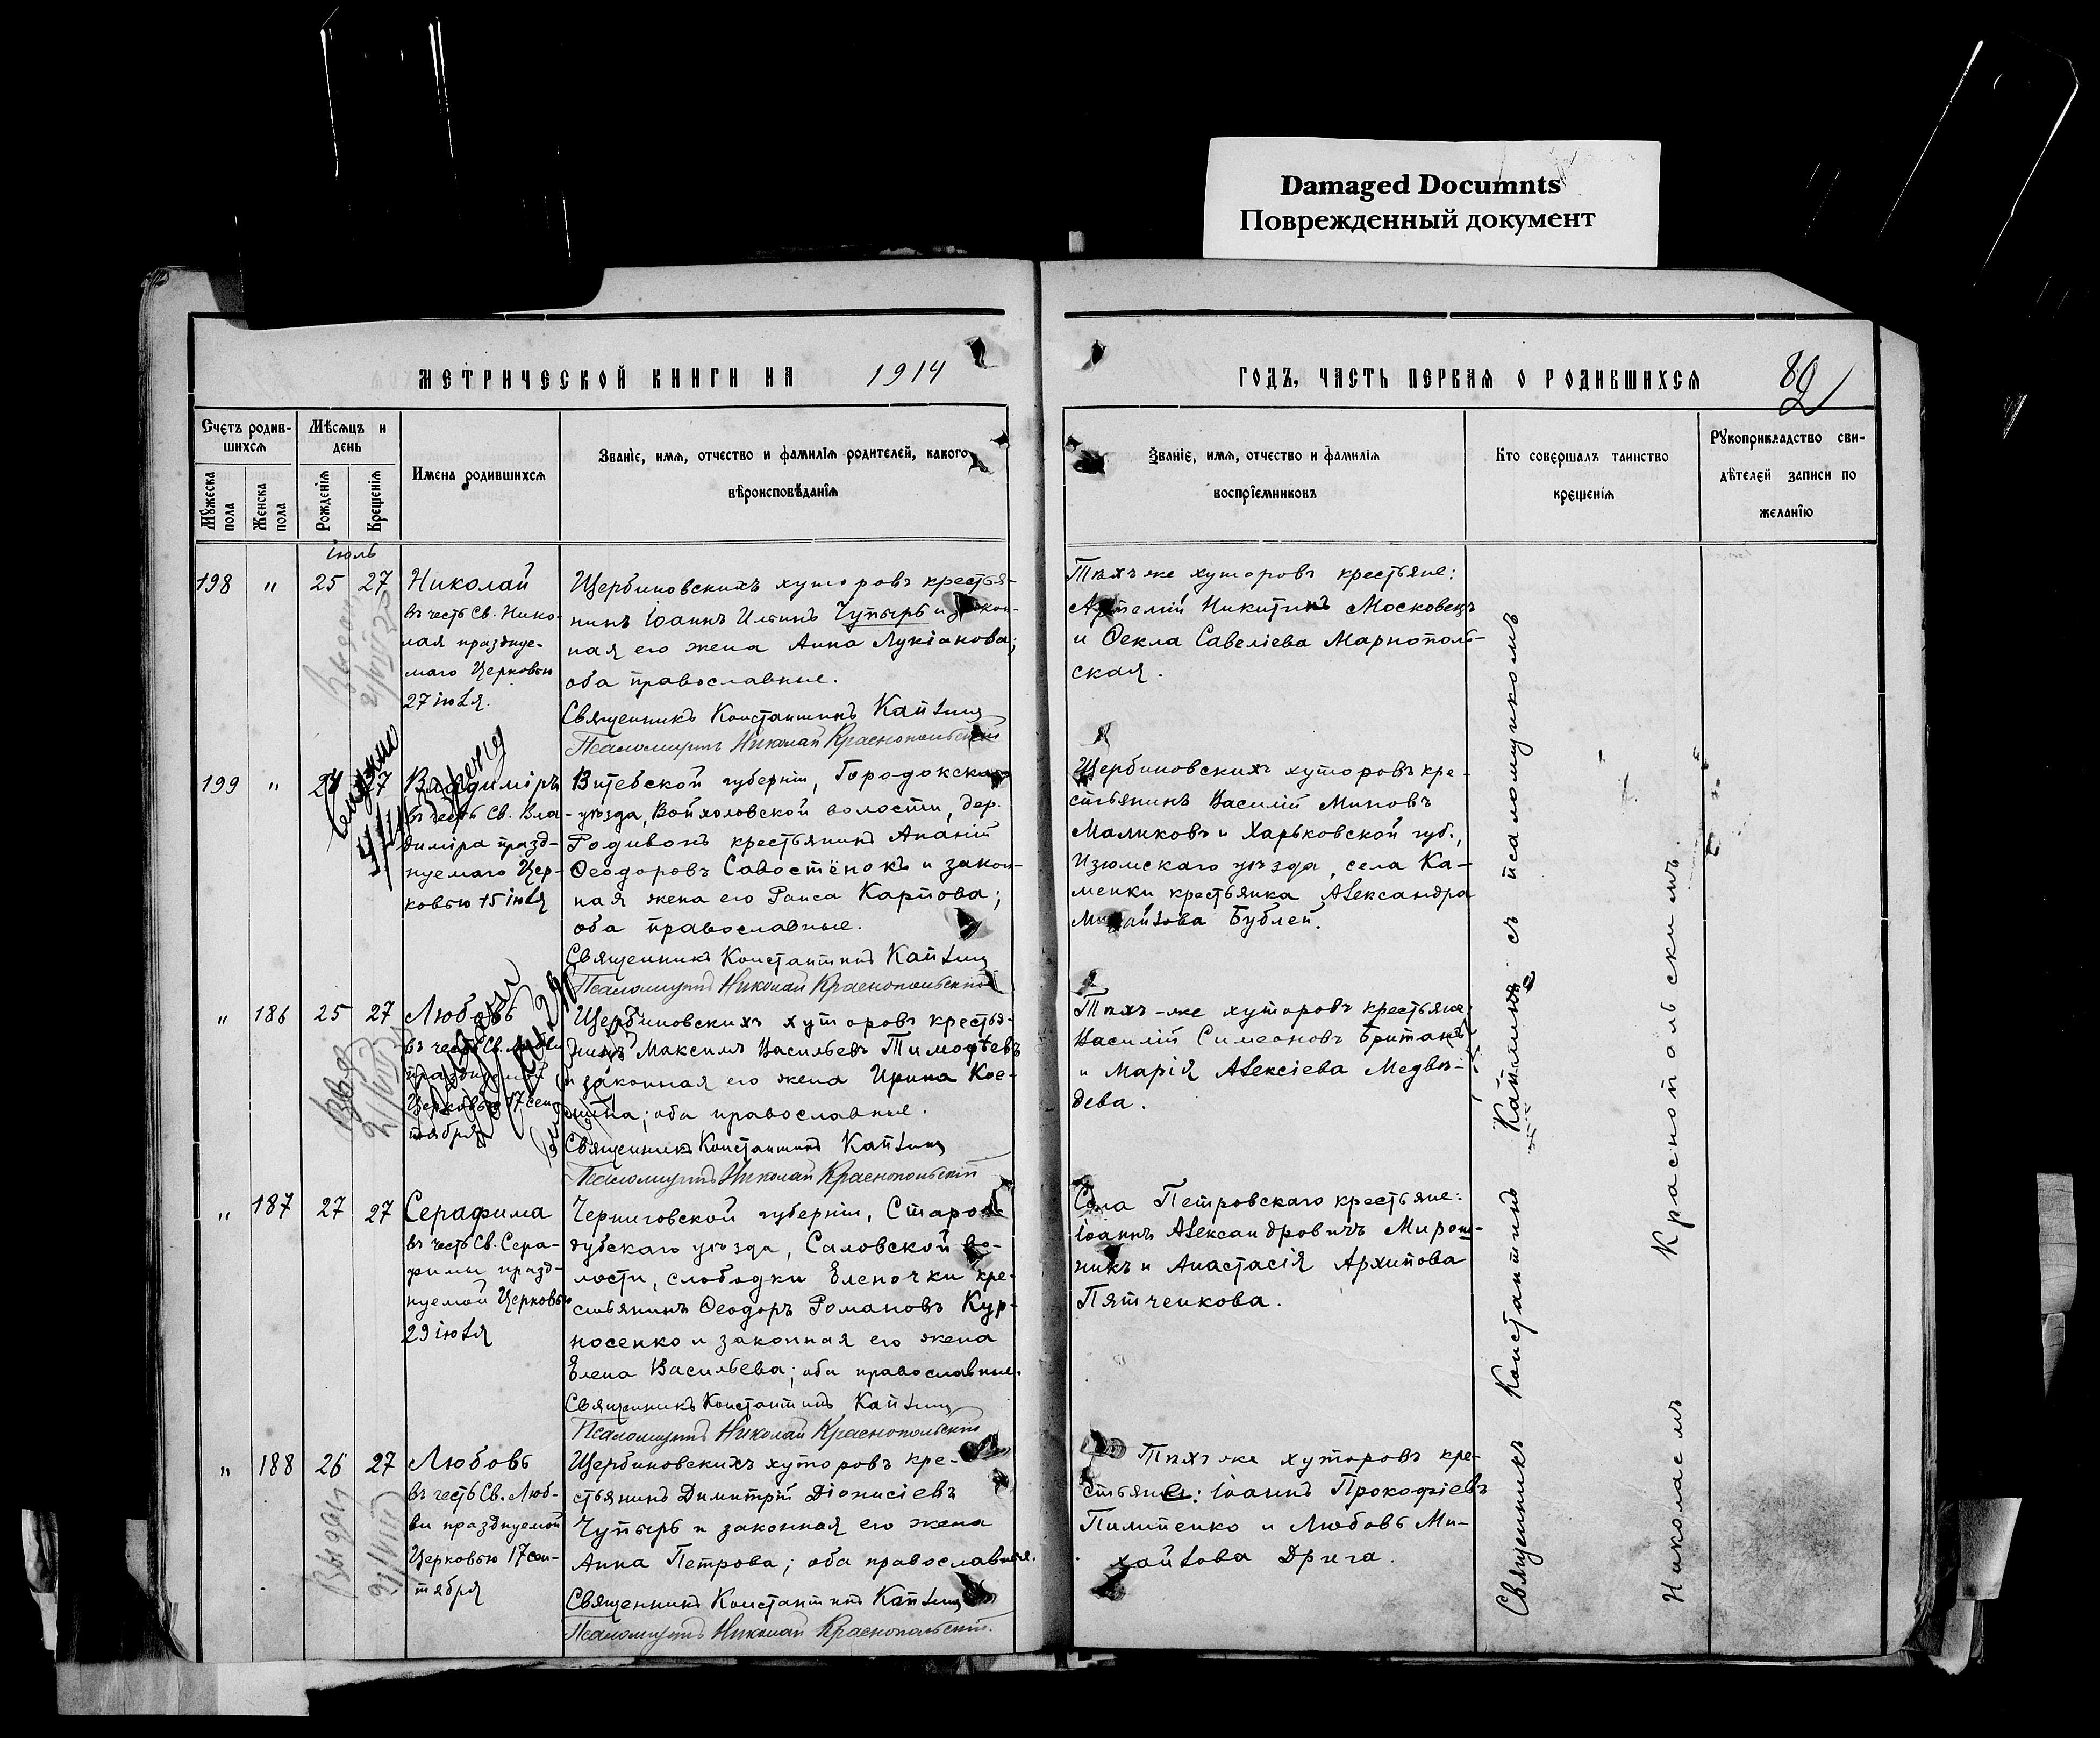 Damaged Documnts
Поврежденный документ
МЕТРИЧЕСКОЙ КНИГИ НА 1914
ГОДЪ, ЧАСТЬ ПЕРВАЯ О РОДИВШИХСЯ
89
Счетъ родив-
шихся
Мѣсяцъ и
день
Мужеска
пола
Женска
пола
Рожденія
Крещенія
Имена родившихся
Званіе, имя, отчество и фамилія родителей, какого
вѣроисповѣданія
Званіе, имя, отчество и фамилія
воспріемниковъ
Кто совершалъ таинство
крещенія
Рукоприкладство сви-
дѣтелей записи по
желанію
іюль
198 " 25 27
Николай
въ честь Св. Нико-
лая праздуе-
маго Церковью
27 іюля.
Щербиновскихъ хуторовъ крестья-
нинъ Іоаннъ Ильинъ Чупырь и закон-
ная его жена Анна Лукіанова;
оба православные.
Священникъ Константинъ Каплинъ
Псаломщикъ Николай Краснопольскій
Тѣхъ же хуторовъ крестьяне:
Артемій Никитинъ Московецъ
и Ѳекла Савеліева Марнополь-
ская.
199 " 24 27
Владиміръ
въ честь Св. Вла-
диміра празд-
нуемаго Цер-
ковью 15 іюля
Витебской губерніи, Городокскаго
уѣзда, Войхоловской волости, дер.
Родивонъ крестьянинъ Ананій
Ѳеодоровъ Савостёнокъ и закон-
ная жена его Раиса Карпова;
оба православные.
Священникъ Константинъ Каплинъ
Псаломщикъ Николай Краснопольскій
Щербиновскихъ хуторовъ кре-
стьянинъ Василій Миновъ
Маликовъ и Харьковской губ.,
Изюмскаго уѣзда, села Ка-
менки крестьянка Александра
Михайлова Бублей.
" 186 25 27
Любовь
въ честь Св. Любви
праздуемой
Церковью 17 сен-
тября
Щербиновскихъ хуторовъ крестья-
нинъ Максимъ Васильевъ Тимофѣевъ
и законная его жена Ирина
оба православные.
Священникъ Константинъ Каплинъ
Псаломщикъ Николай Краснопольскій
Тѣхъ-же хуторовъ крестьяне:
Василій Симеоновъ Британъ
и Марія Алексіева Медвѣ-
дева.
" 187 27 27
Серафима
въ честь Св. Сера-
фимы празд-
нуемой Церковью
29 іюля
Черниговской губерніи, Старо-
дубскаго уѣзда, Саловской во-
лости, слободки Еленочки кре-
стьянинъ Ѳеодоръ Романовъ Кур-
носенко и законная его жена
Елена Васильева; оба православные.
Священникъ Константинъ Каплинъ
Псаломщикъ Николай Краснопольскій
Села Петровскаго крестьяне:
Іоаннъ Александровичъ Мирош-
никъ и Анастасія Архипова
Пятченкова.
" 188 26 27
Любовь
въ честь Св. Люб-
ви празднуемой
Церковью 17 сен-
тября
Щербиновскихъ хуторовъ кре-
стьянинъ Димитрій Діонисіевъ
Чупырь и законная его жена
Анна Петрова; оба православные.
Священникъ Константинъ Каплинъ
Псаломщикъ Николай Краснопольскій.
Тѣхъ же хуторовъ кре-
стьяне: Іоаннъ Прокофіевъ
Пилипенко и Любовь Ми-
хайлова Дрига.
Священникъ Константинъ Каплинъ съ псаломщикомъ
Николаемъ Краснопольскимъ.